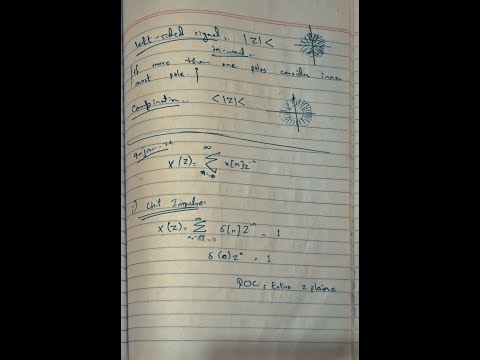 Left-sided signal.. |Z| <
in-ward..
If more than one poles consider inner
most pole }
Combination.. < |Z| <
9-Jan-24
X(Z) = ∞ Σ n=-∞ x[n] z⁻ⁿ
i) Unit Impulse
X(Z) = ∞ Σ δ[n] Z⁻ⁿ = 1
δ(0) z⁰ = 1
ROC = Entire z plane